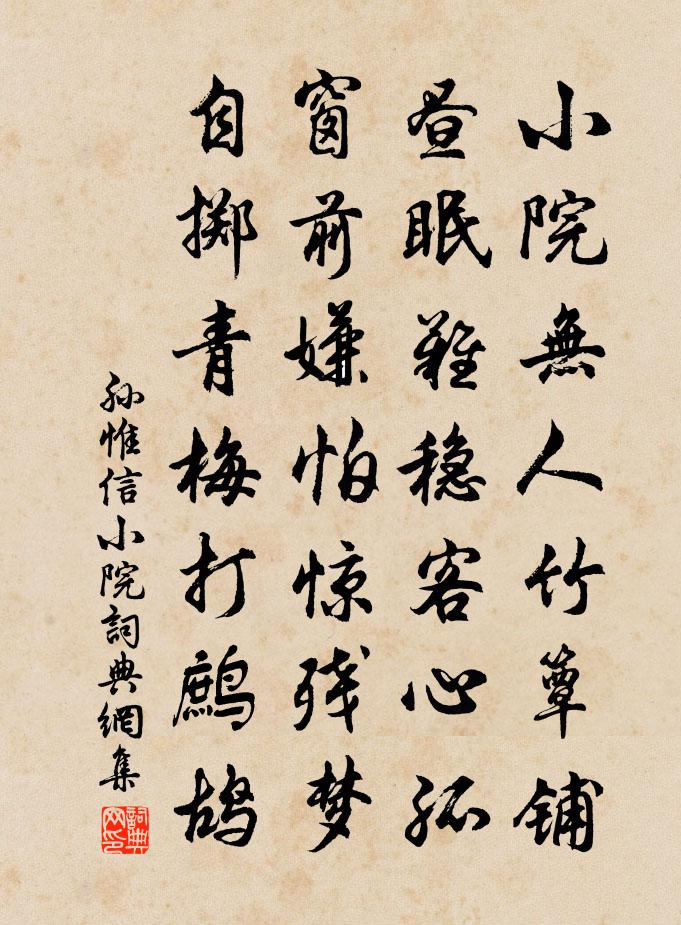 小院無人竹簟铺
昼眠難稳客心孤
窗前嫌怕惊残梦
自掷青梅打鹧鸪
孙惟信小院詞典網集
詞典网印